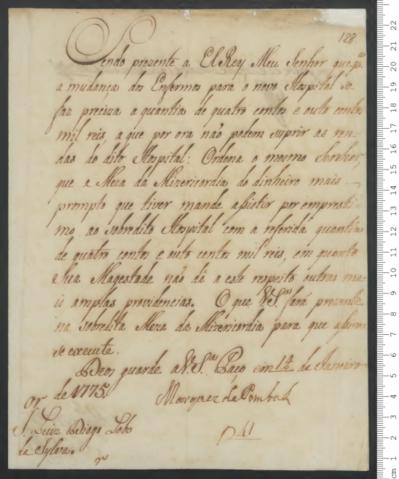 128
Sendo prezente a ElRey Meu Senhor que pa
a mudança dos Enfermos para o novo Hospital se
faz preciza a quantia de quatro contos e outo centos
mil reis, a que por ora não podem suprir as ren
das do dito Hospital: Ordena o mesmo Senhor,
que a Meza da Mizericordia, do dinheiro mais
prompto que tiver mande asistir por empresti
mo, ao sobredito Hospital com a referida quantia
de quatro contos e outo centos mil reis, em quanto
Sua Magestade não dá a este respeito outras ma
is amplas providencias. O que VSa. fará prezente
na sobredita Meza da Mizericordia para que asim
se execute.
Deos guarde a VSa. Paço em 12 de Janeiro
de 1775.
Marquez de Pombal
Sr. Luiz Diogo Lobo
da Sylva.